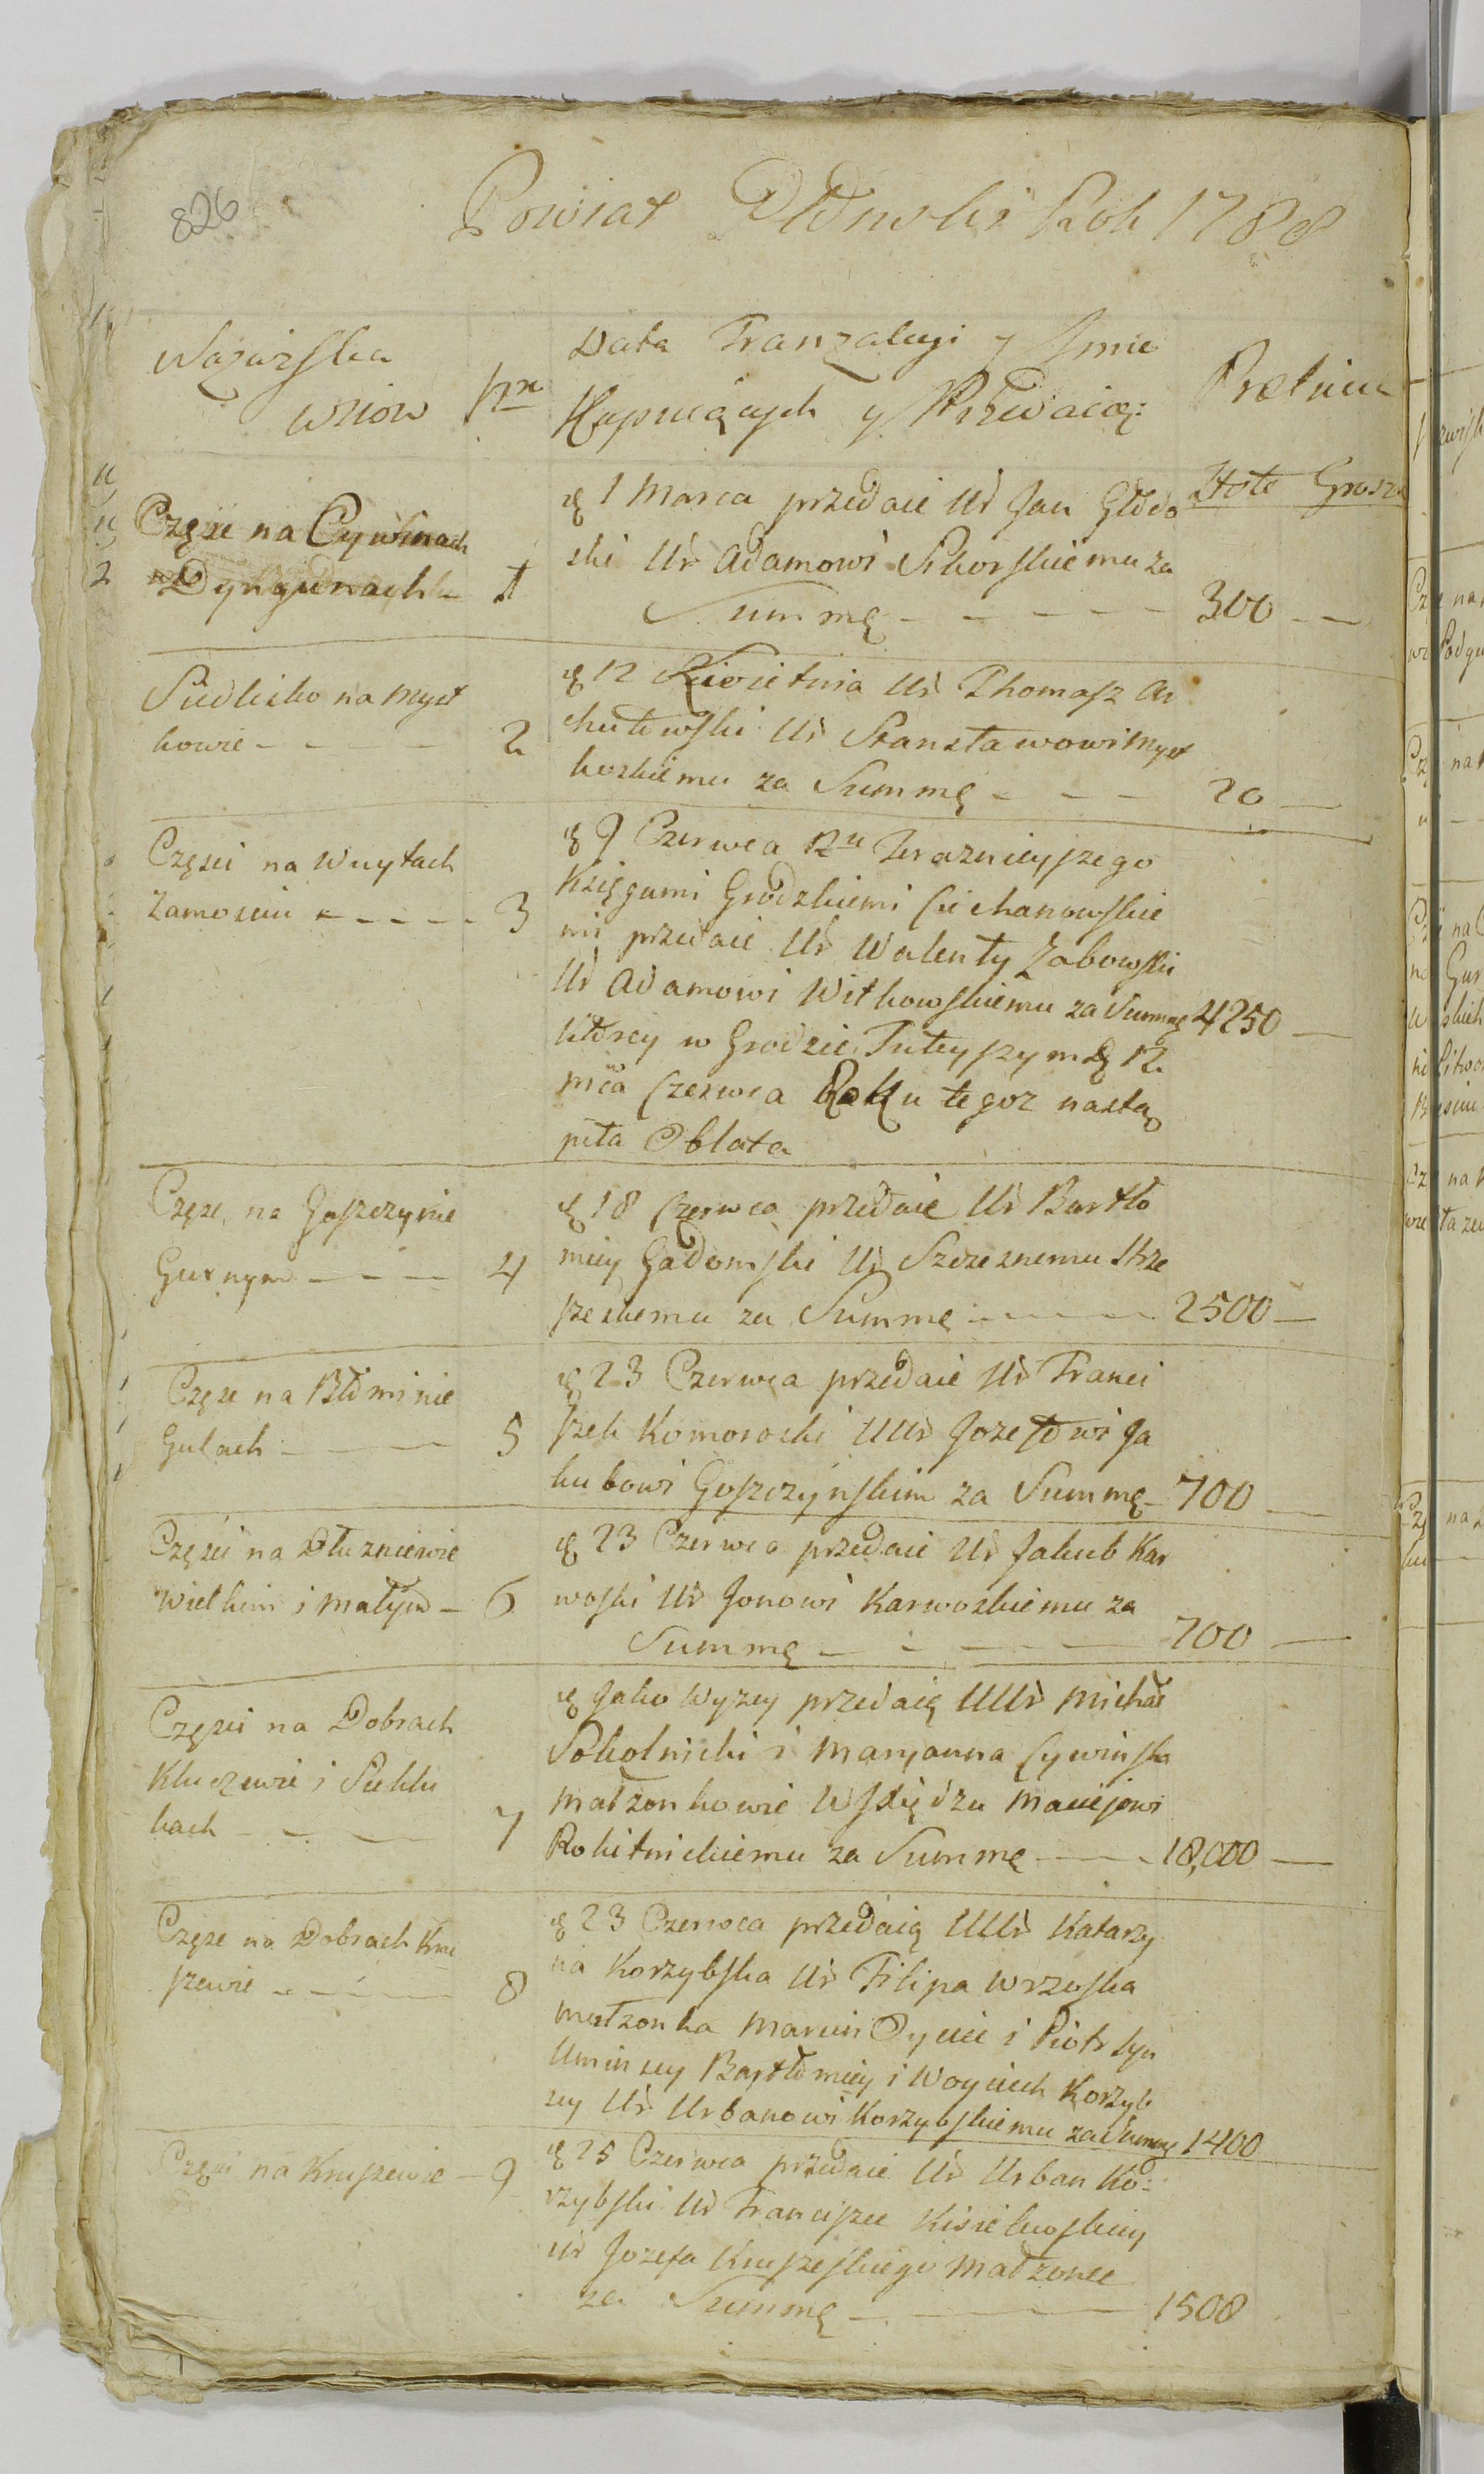 826
Powiat Rok 1788
Nazwiska
wsiow
Nro
Data Tranzakcyi y Imie
Kupuiących y Przedaiąc:
Pretium
Złote Grosze
Części na Cywinach
Dyngunach
1
d 1 Marca przedaie Ur Jan Głodo
ski Ur Adamowi Sikorskiemu za
Summę
300
Siedlisko na Myst
kowie
2
d 12 Kwietnia Ur Thomasz Ar
chutowski Ur Stanisławowi Myst
koskiemu za Summę
20
Części na Wnytach
Zamosciu
3
d 9 Czerwca Ru Teraznieyszego
Księgami Grodzkiemi Ciechanowskie
mi przedaie Ur Walenty Zabowski
Ur Adamowi Witkowskiemu za Summę
4250
ktorey w Grodzie Tuteyszym d 12
mca Czerwca Roku tegoz nastą
piła Oblata
Częsc na Goszczynie
Gurnym
4
d 18 Czerwca przedaie Ur Bartło
miey Gadomski Ur Szczesnemu Strze
szeskemu za Summę
2500
Częsc na Błominie
Gulach
5
d 23 Czerwca przedaie Ur Franci
szek Komorocki UUr Jozefowi Ja
kubowi Goszczyńskim za Summę
700
Części na Dłuzniewie
Wielkim i Małym
6
d 23 Czerwca przedaie Ur Jakub Kar
woski Ur Janowi Karwoskiemu za
Summę
700
Części na Dobrach
Kluczewie i Sieklu
kach
7
d Jako Wyzey przedaią UUr Michał
Sokolnicki i Maryanna Cywinska
Małzonkowie W Xiędzu Maciejowi
Rokitnickiemu za Summę
18,000
Częsc na Dobrach Kru
szewie
8
d 23 Czerwca przedaią UUr Katarzy
na Korzybska Ur Filipa Wrzoska
małzonka Marcin Oyciec i Piotr Syn
Uminscy Bartłomiey i Woyciech Korzyb
scy Ur Urbanowi Korzybskiemu za Summę
1400
Części na Kruszewie
9
d 25 Czerwca przedaie Ur Urban Ko:
rzybski Ur Franciszce Kisielewskiey
Ur Jozefa Kruszeskiego Małzonce
za Summę
1508